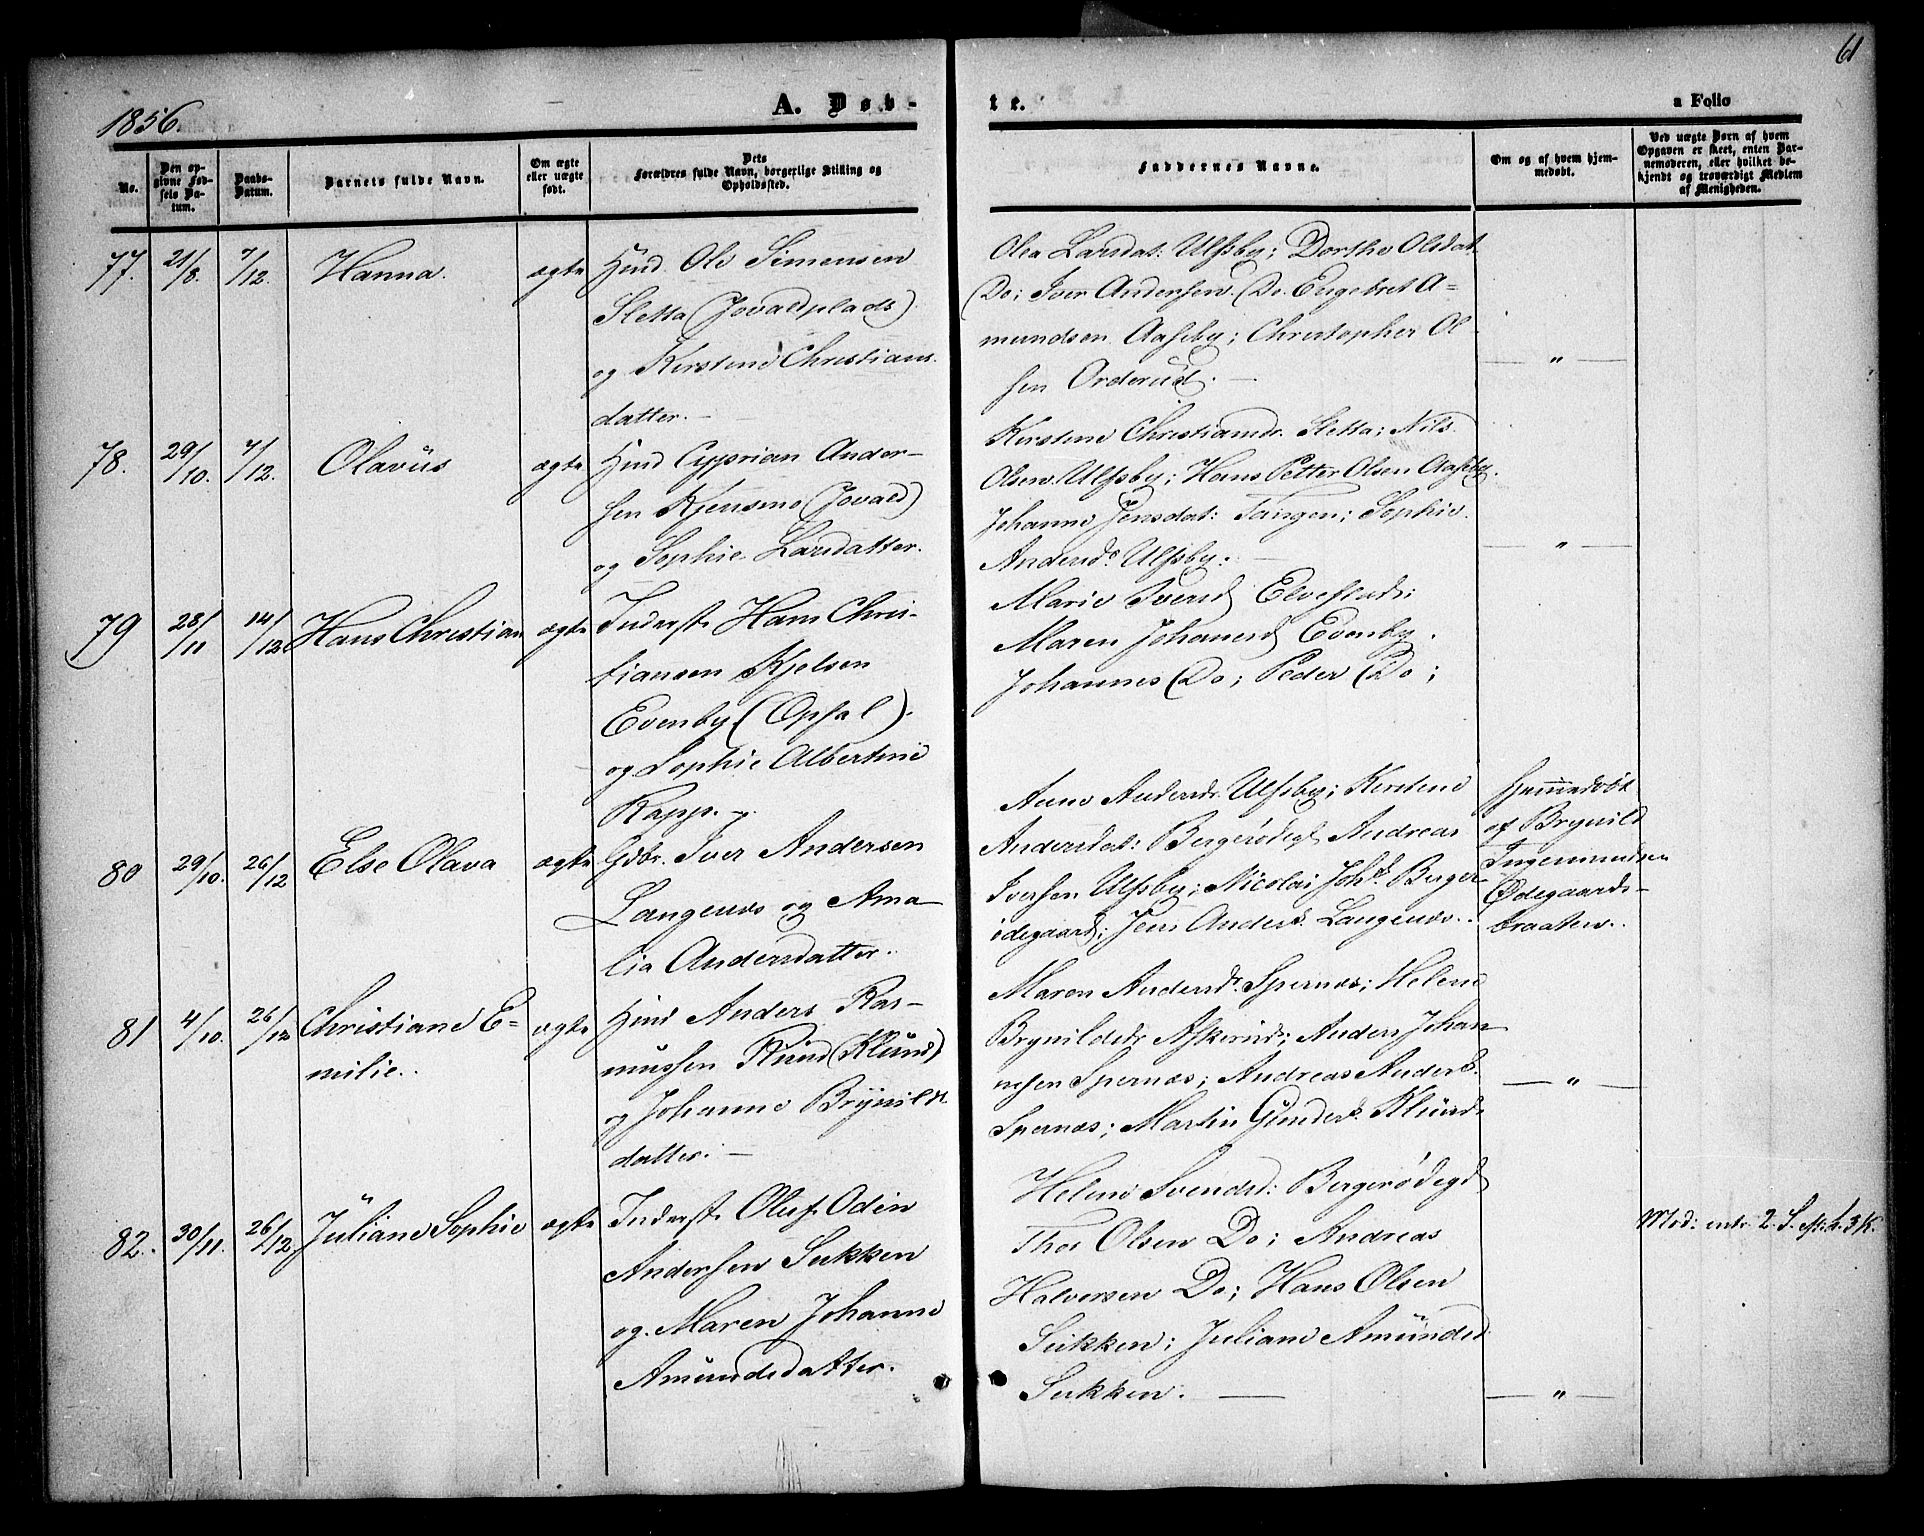 61
1856
A. Døb-
te.
a Folio
No.
Den op-
givne Fød-
sels Da-
tum.
Daabs-
Datum.
Barnets fulde Navn.
Om ægte
eller uægte
født.
Dets
Forældres fulde Navn, borgerlige Stilling og
Opholdssted.
Faddernes Navne.
Om og af hvem hjem-
medøbt.
Ved uægte Børn af hvem
Opgaven er skeet, enten Bar-
nemoderen, eller hvilket be-
kjendt og troværdigt Medlem
af Menigheden.
77. 21/8. 7/12. Hanna. ægte Hmd. Ole Simensen
Sletta (Jovaldplads)
og Kirstine Christians-
datter. –
Olea Larsdat: Ulfsby; Dorthe Olsdat
Do; Iver Andersen Do. Engebret A=
mundsen Aaseby; Christopher Ol
sen Orderud. –
— " —
78. 29/10. 7/12. Olavus ægte Hmd Cyprian Ander-
sen Kjensmo (Jovald)
og Sophie Larsdatter.
Kirstine Christiansdr. Sletta; Nils
Olsen Ulfsby; Hans Petter Olsen Aaseby.
Johanne Jensdat: Tangen; Sophie
Andersd. Ulfsby. –
— " —
79 28/11 14/12 Hans Christian ægte Inderst Hans Chris-
tiansen Kjelsen
Evenby (Opsal).
og Sophie Albertine
Rapp. –
Marie Iversd Elvestad;
Maren Johannesd Evenby.
Johannes Do; Peder Do;
80 29/10. 26/12 Else Olava ægte Gdbr. Iver Andersen
Langenæs og Ama-
lia Andersdatter.
Anne Andersdr. Ulfsby; Kirstine
Andersdat: Bergerødegd Andreas
Iversen Ulfsby; Nicolai Johs. Berger-
ødegaard; Jens Anders. Langenæs.
Hjemmedøbt
af Brynild
Ingemundsen
Ødegaards-
braaten.
81 4/10. 26/12 Christiane E=
milie. ægte Hmd Anders Ras-
mussen Klund (Klund)
og Johanne Brynilds
datter. –
Maren Andersdr. Spernæs; Helene
Brynildsdr Askerud; Anders Johan
nesen Spernæs; Andreas Anders.
Spernæs; Martin Gunders. Klund
— " —
82. 30/11. 26/12. Juliane Sophie ægte Inderst Oluf Odin
Andersen Sukken
og Maren Johanne
Amundsdatter.
Helene Svendsd: Bergerødegd
Thor Olsen Do; Andreas
Halvorsen Do; Hans Olsen
Sukken; Juliane Amundsd
Sukken. —
— " —